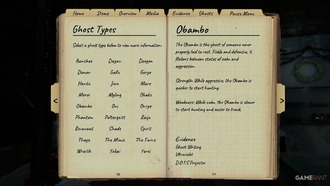 Home Items Overview Media Evidence Ghosts Pause Menu
Ghost Types
Select a ghost type below to view more information.
Banshee Dayan Deogen
Demon Gallu Goryo
Hantu Jinn Mare
Moroi Myling Obake
Obambo Oni Onryo
Phantom Poltergeist Raiju
Revenant Shade Spirit
Thaye The Mimic The Twins
Wraith Yokai Yurei
Obambo
The Obambo is the ghost of someone never
properly laid to rest. Fickle and defensive, it
flickers between states of calm and
aggression.
Strength: While aggressive, the Obambo is
quicker to start hunting.
Weakness: While calm, the Obambo is slower
to start hunting and easier to track.
Evidence
Ghost Writing
Ultraviolet
D.O.T.S Projector
GAMERANT